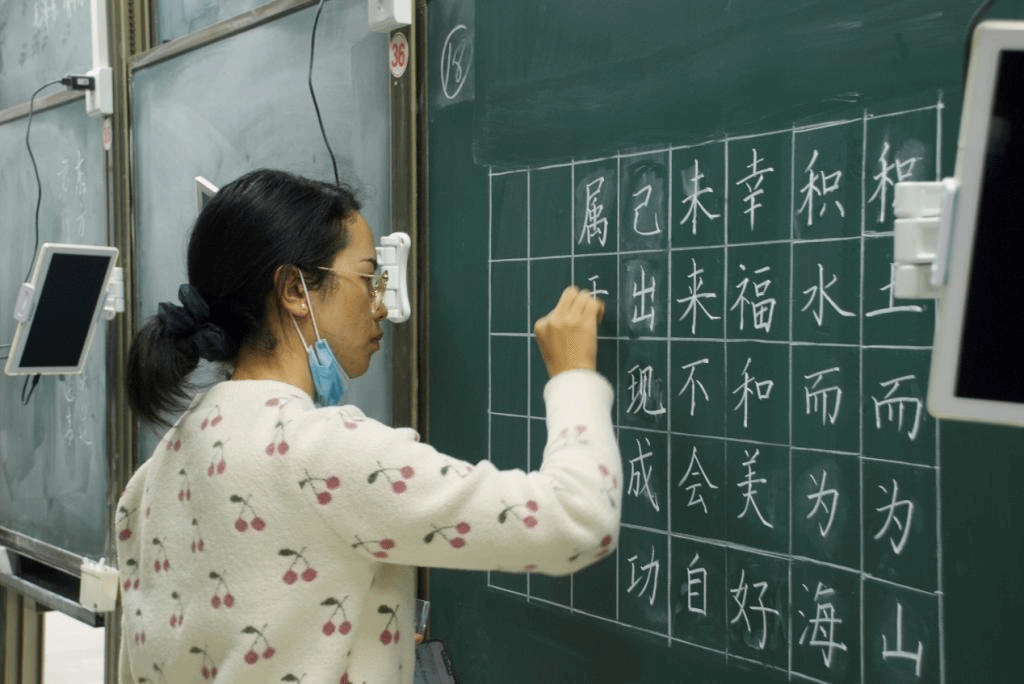 36
18
积土而为山
积水而为海
幸福和美好
未来不会自
己出现成功
属